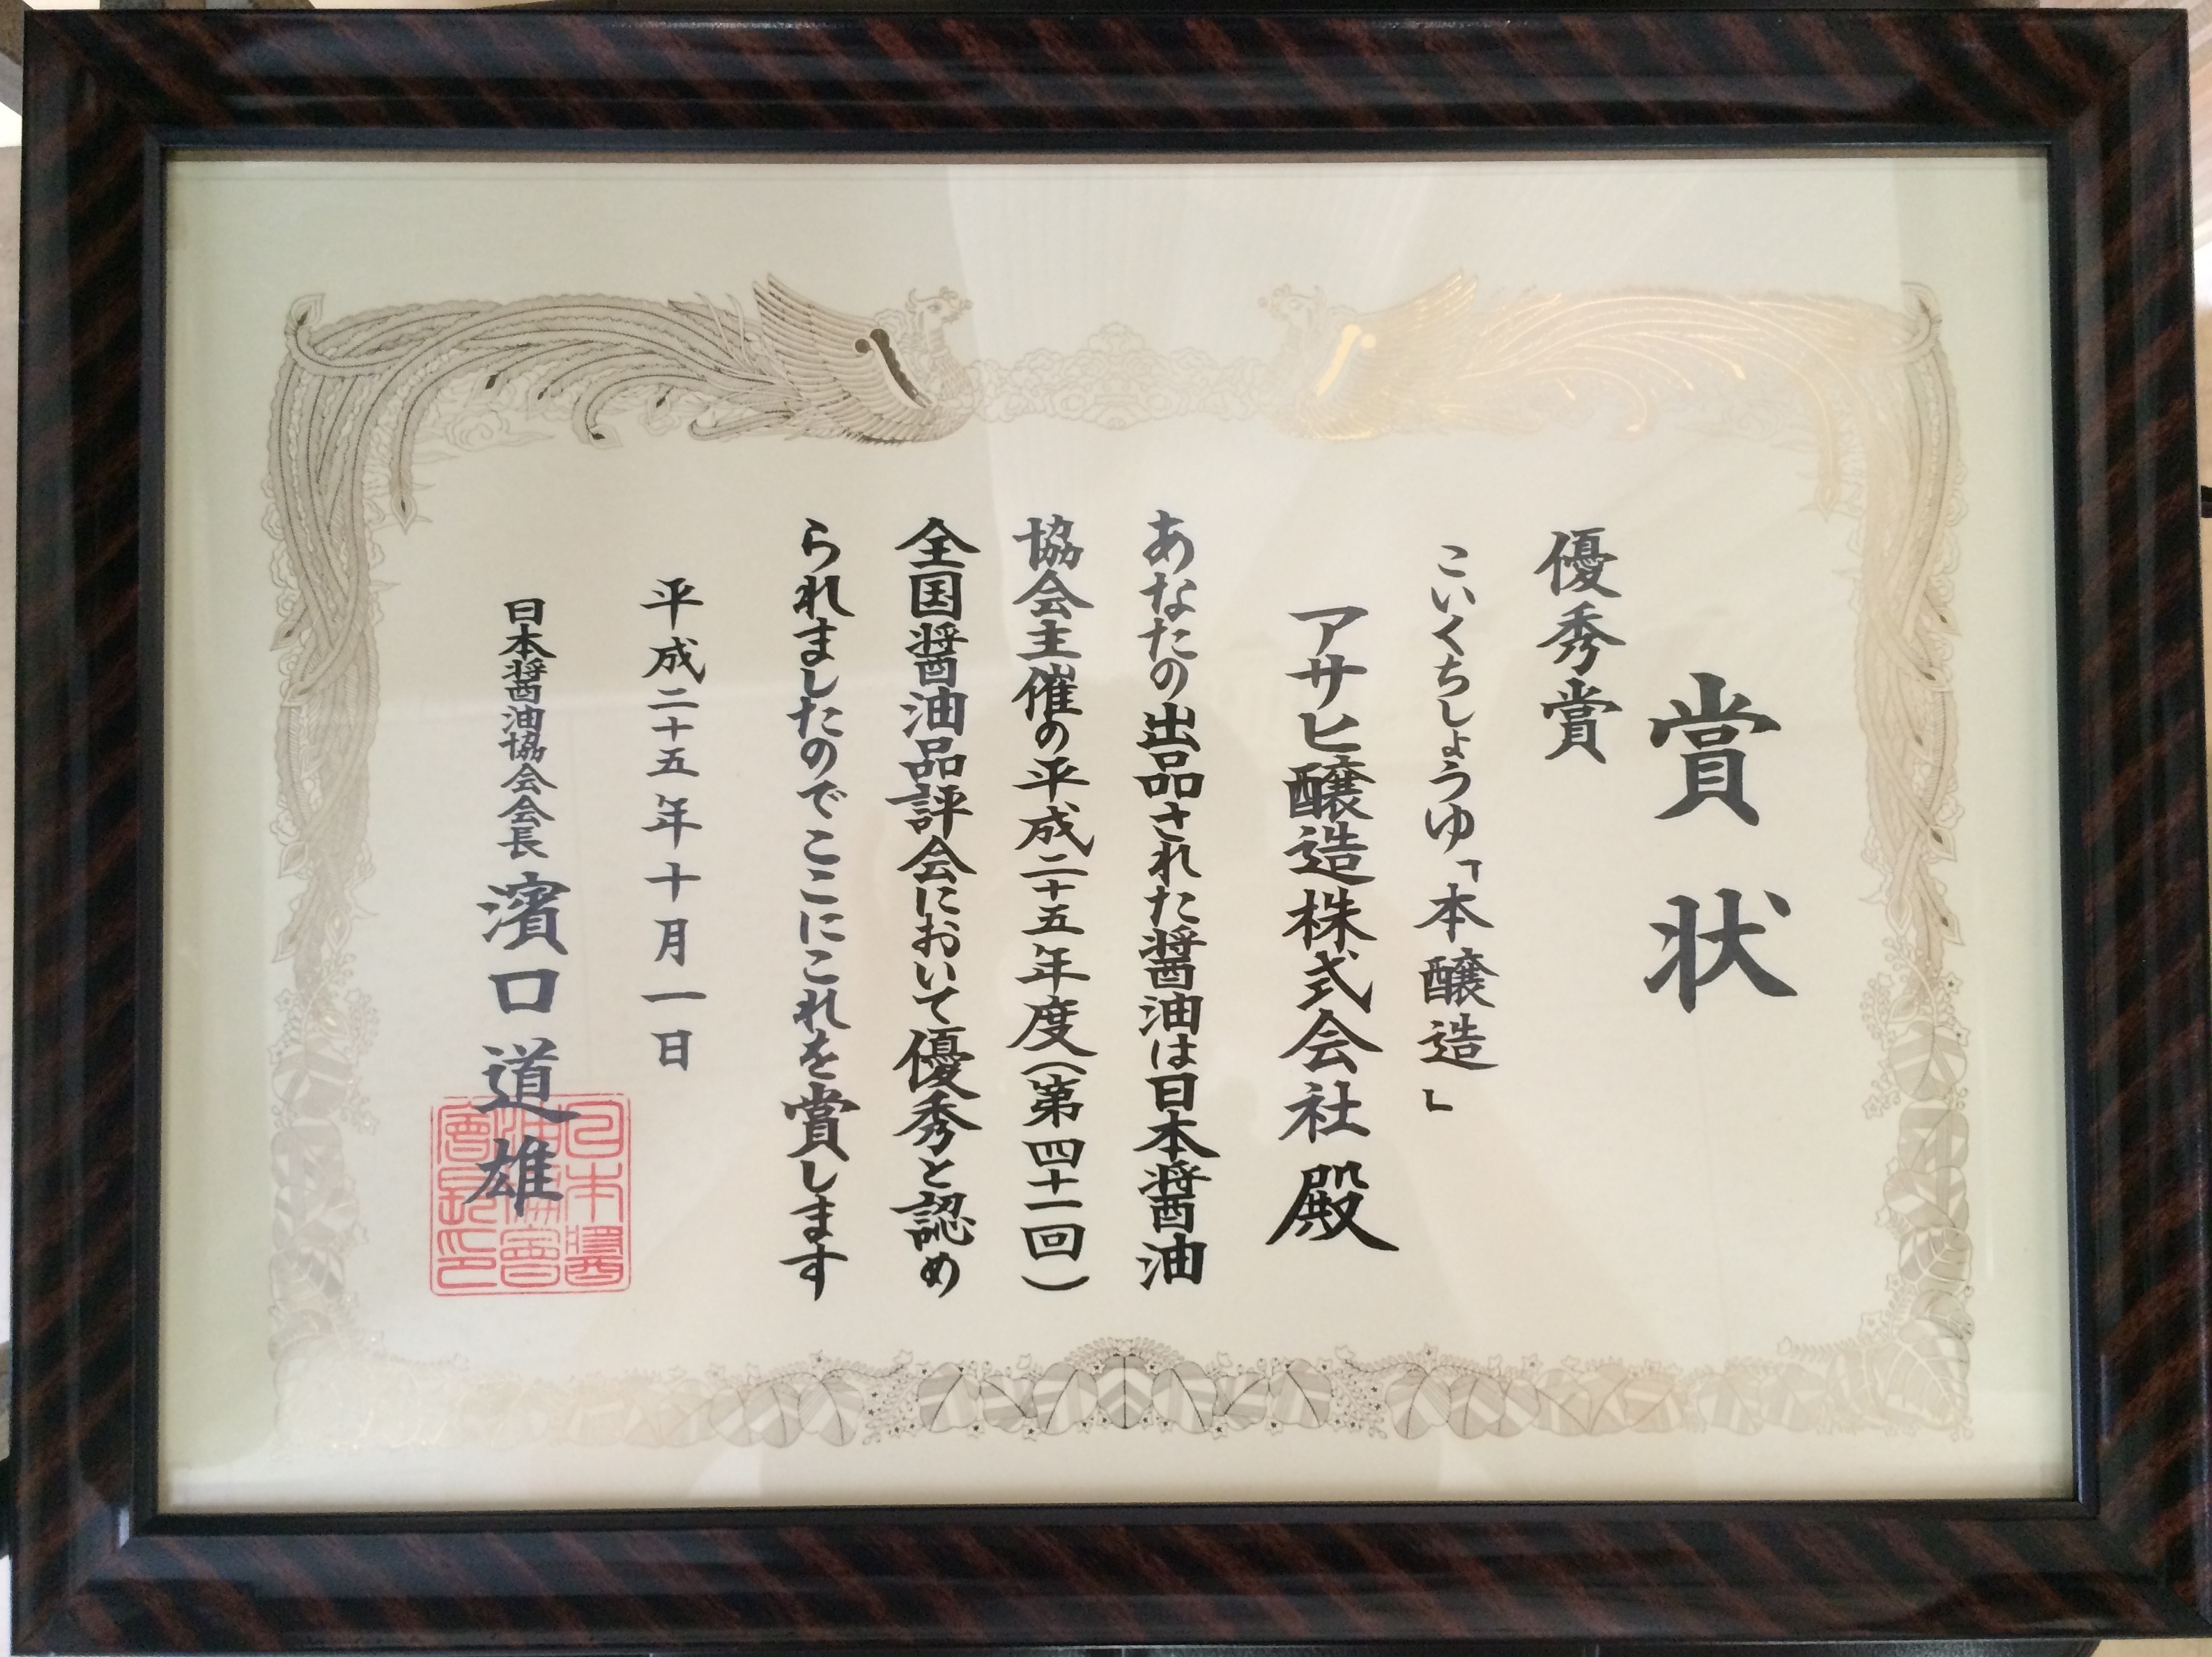 賞状
優秀賞
こいくちしょうゆ「本醸造」
アサヒ醸造株式会社 殿
あなたの出品された醤油は日本醤油
協会主催の平成二十五年度(第四十一回)
全国醤油品評会において優秀と認め
られましたのでここにこれを賞します
平成二十五年十月一日
日本醤油協会会長 濱口道雄
日本醤
油協會
會長印